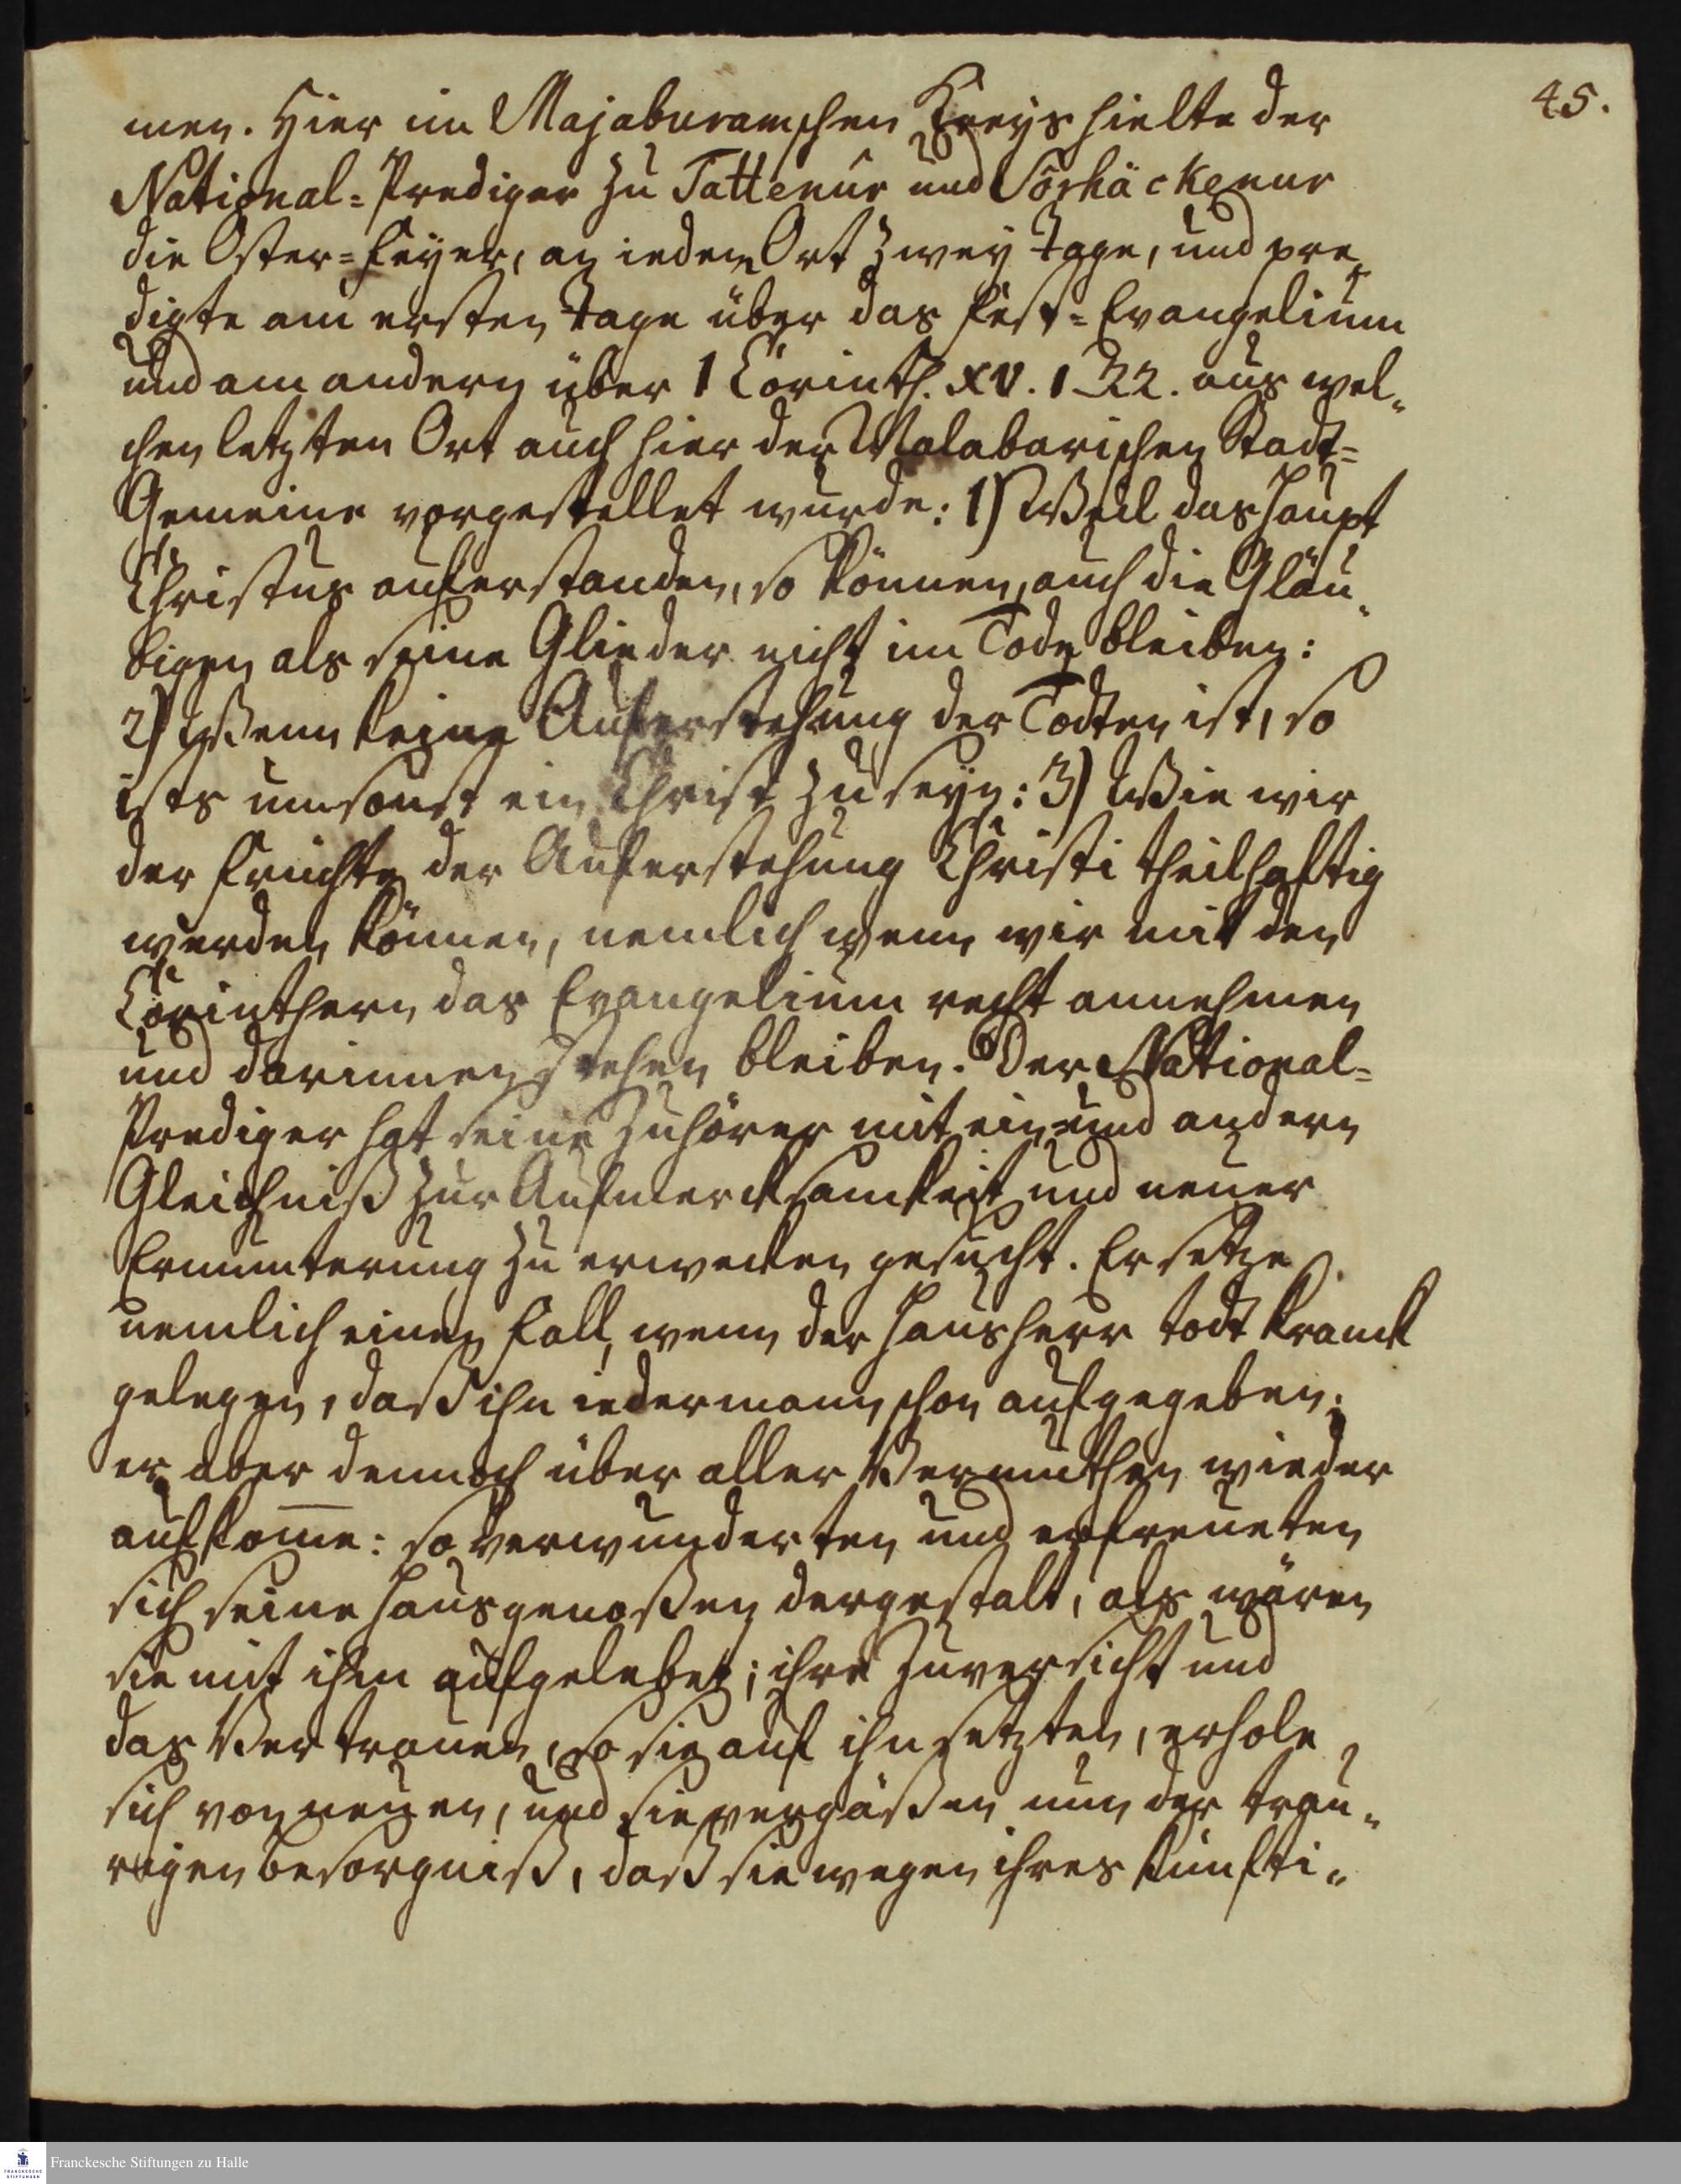 45.
men. Hier im Majaburamschen Kreys hielte der
National=Prediger zu Tattenûr und Sôrhäckenur
die Oster=Feyer, an iedem Ort zwey Tage, und pre„
digte am ersten Tage über das Fest=Evangelium
und am andern über 1 Corinth. XV. 1_22. aus wel„
chen letzten Ort auch hier der Malabarischen Stadt=
Gemeine vorgestellet wurde: 1) Weil das Haupt
Christus auferstanden, so können auch die Gläu„
bigen als seine Glieder nicht im Tode bleiben:
2) Wenn keine Auferstehung der Todten ist, so
ists umsonst ein Christ zu seyn: 3) Wie wir
der Früchte der Auferstehung Christi theilhaftig
werden können, nemlich wenn wir mit den
Corinthern das Evangelium recht annehmen
und darinnen stehen bleiben. Der National=
Prediger hat seine Zuhörer mit ein=und andern
Gleichniß zur Aufmercksamkeit und neuer
Ermunterung zu erwecken gesucht. Er setze
nemlich einen Fall, wenn der Hausherr todt kranck
gelegen, daß ihn iedermann schon aufgegeben;
er aber dennoch über aller Vermuthen wieder
aufkom̅e: so verwunderten und erfreueten
sich seine Hausgenoßen dergestalt, als wären
sie mit ihm aufgelebet; ihre Zuversicht und
das Vertrauen, so sie auf ihn setzten, erhole
sich von neuen, und sie vergäßen nun der trau„
rigen Besorgniß, daß sie wegen ihres künfti„
Franckesche Stiftungen zu Halle
FRANCKESCHE STIFTUNGEN